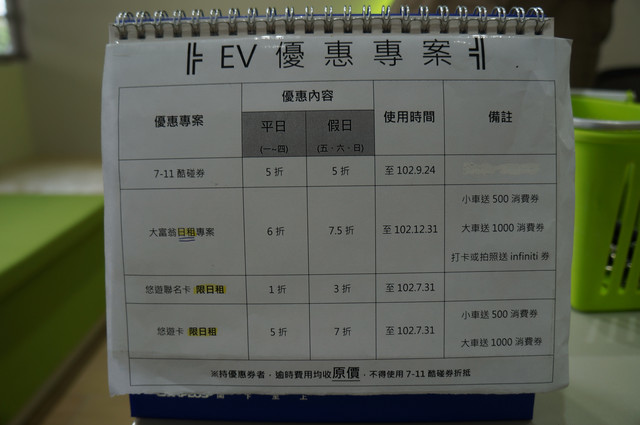 ╠ EV 優惠專案 ╣
優惠專案 優惠內容 使用時間 備註
平日 假日
(一~四) (五、六、日)
7-11 酷碰券 5 折 5 折 至 102.9.24
小車送 500 消費券
大富翁日租專案 6 折 7.5 折 至 102.12.31 大車送 1000 消費券
打卡或拍照送 infiniti 券
悠遊聯名卡 限日租 1 折 3 折 至 102.7.31
小車送 500 消費券
悠遊卡 限日租 5 折 7 折 至 102.7.31
大車送 1000 消費券
※持優惠券者，逾時費用均收原價，不得使用 7-11 酷碰券折抵